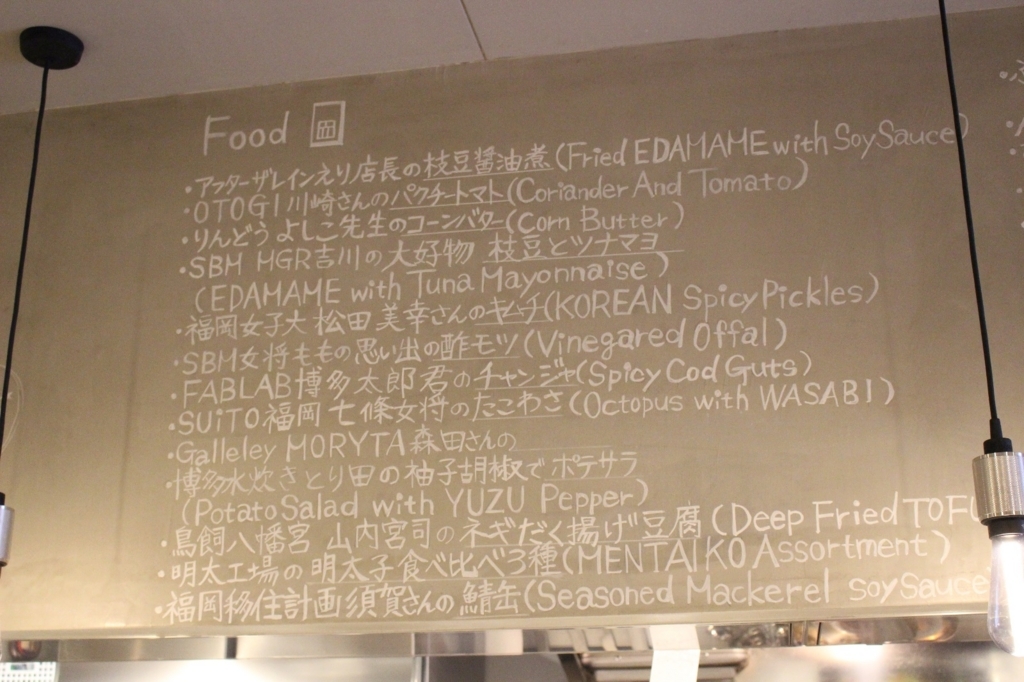 Food
・アフターザレインえり店長の枝豆醤油煮(Fried EDAMAME with Soy Sauce)
・OTOGI川崎さんのパクチートマト(Coriander And Tomato)
・りんどうよしこ先生のコーンバター(Corn Butter)
・SBM MGR吉川の大好物 枝豆とツナマヨ
(EDAMAME with Tuna Mayonnaise)
・福岡女子大 松田美幸さんのキムチ(KOREAN Spicy Pickles)
・SBM女将ももの思い出の酢モツ(Vinegared Offal)
・FABLAB博多太郎君のチャンジャ(Spicy Cod Guts)
・SUiTO福岡 七條女将のたこわさ(Octopus with WASABI)
・Galleley MORYTA森田さんの
・博多水炊きとり田の柚子胡椒でポテサラ
(Potato Salad with YUZU Pepper)
・鳥飼八幡宮 山内宮司のネギだく揚げ豆腐(Deep Fried TOFU
・明太工場の明太子食べ比べ3種(MENTAIKO Assortment)
・福岡移住計画須賀さんの鯖缶(Seasoned Mackerel soy Sauce